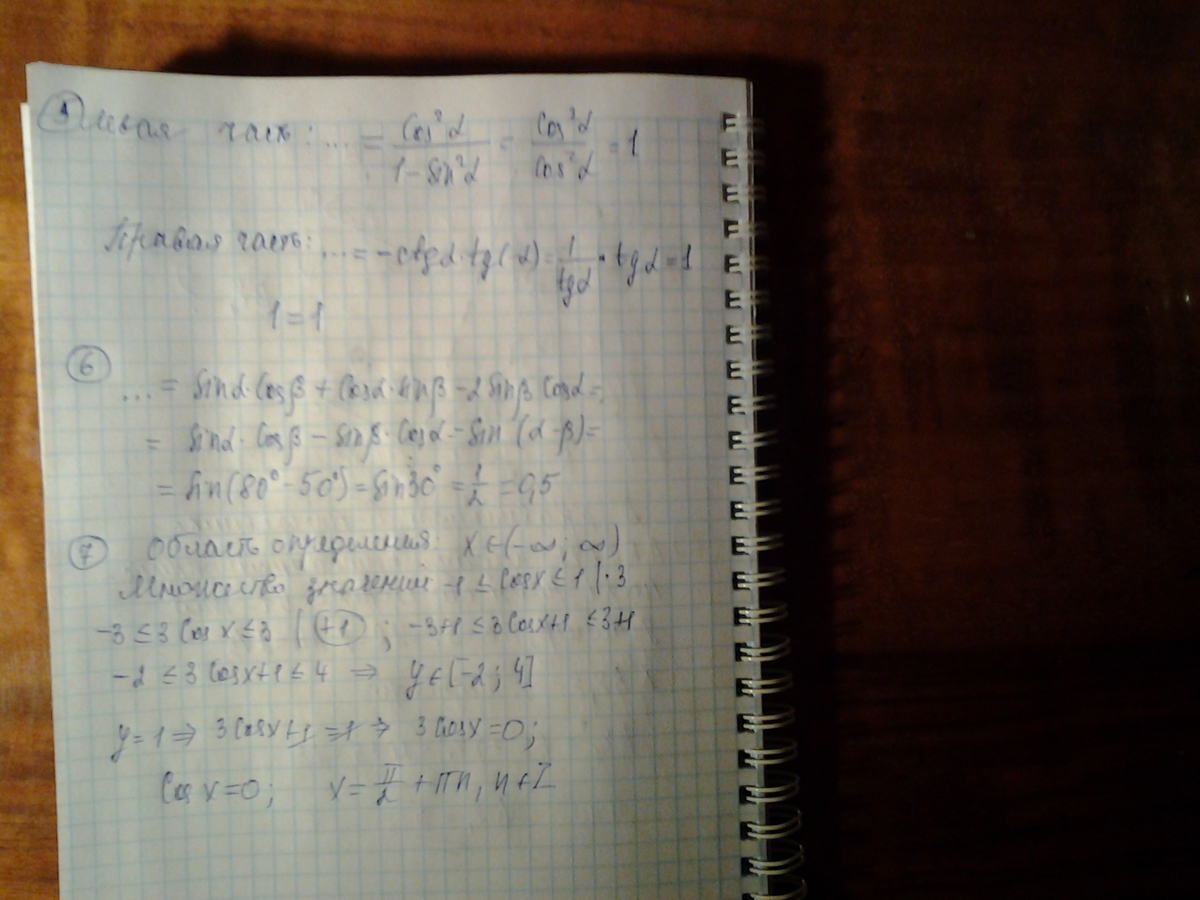 1 Левая часть: ... = cos²α / 1 - sin²α = cos²α / cos²α = 1
Правая часть: ... = -ctgα·tg(-α) = 1/tgα · tgα = 1
1 = 1
6
... = sinα·cosβ + cosα·sinβ - 2 sinβ cosα =
= sinα·cosβ - sinβ·cosα = sin(α-β) =
= sin(80° - 50°) = sin30° = 1/2 = 0,5
7 Область определения: x∈(-∞; ∞)
Множество значений -1 ≤ cosx ≤ 1 |·3
-3 ≤ 3cosx ≤ 3 | +1 ; -3+1 ≤ 3cosx+1 ≤ 3+1
-2 ≤ 3cosx+1 ≤ 4 ⇒ y∈[-2; 4]
y = 1 ⇒ 3cosx+1 = 1 ⇒ 3cosx = 0;
cosx = 0; x = π/2 + πn, n∈Z